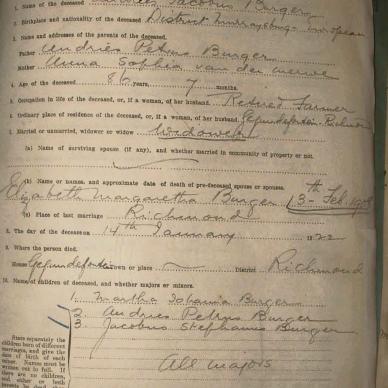 1. Name of the deceased Jacobus Burger
2. Birthplace and nationality of the deceased District Murraysburg European
3. Names and addresses of the parents of the deceased.
Father Andries Petrus Burger
Mother Anna Sophia van der Merwe
4. Age of the deceased 86 years, 7 months.
5. Occupation in life of the deceased, or, if a woman, of her husband. Retired Farmer
6. Ordinary place of residence of the deceased, or, if a woman, of her husband, Gefundefontein Richmond
7. Married or unmarried, widower or widow Widower
(a) Name of surviving spouse (if any), and whether married in community of property or not.
(b) Name or names, and approximate date of death of pre-deceased spouse or spouses.
Elizabeth Margaretha Burger 13th Feb
(c) Place of last marriage Richmond
8. The day of the decease on 14th January 1922
9. Where the person died.
House Gefundefontein Town or place District Richmond
10. Names of children of deceased, and whether majors or minors.
1. Martha Johanna Burger
2. Andries Petrus Burger
3. Jacobus Stephanus Burger
All majors
State separately the
children born of different
marriages, and give the
date of birth of each
minor. Names must be
written out in full. If
there are no children,
and either or both